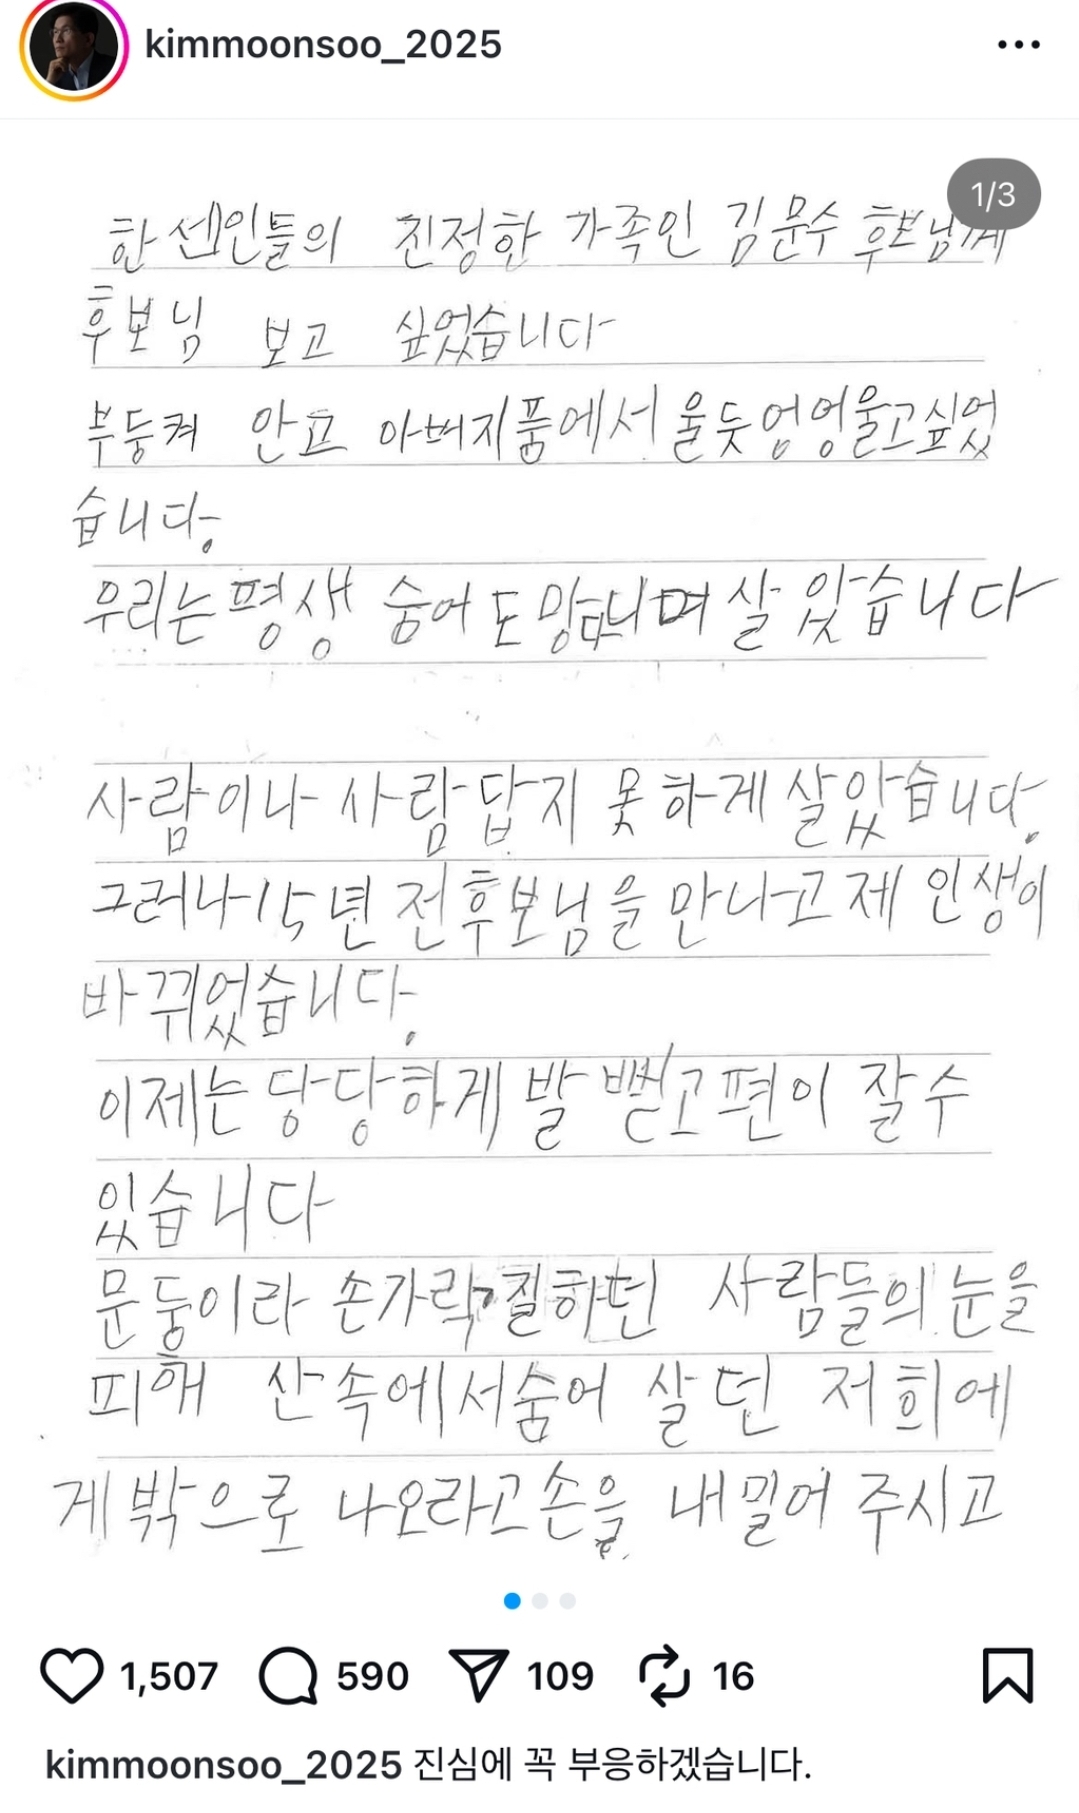 kimmoonsoo_2025
1/3
한센인들의 진정한 가족인 김문수 후보님께
후보님 보고 싶었습니다
부둥켜 안고 아버지품에서 울듯 엉엉울고싶었
습니다.
우리는 평생 숨어 도망다니며 살았습니다
사람이나 사람답지 못하게 살았습니다.
그러나 15년 전 후보님을 만나고 제 인생이
바뀌었습니다.
이제는 당당하게 발 뻗고 편이 잘수
있습니다
문둥이라 손가락질하던 사람들의 눈을
피해 산속에서 숨어 살던 저희에
게 밖으로 나오라고 손을 내밀어 주시고
1,507 590 109 16
kimmoonsoo_2025 진심에 꼭 부응하겠습니다.